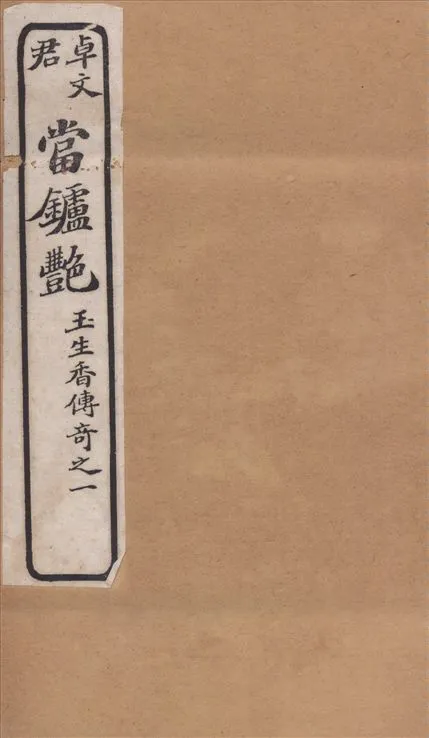 卓文君
當鑪艷
玉生香傳奇之一